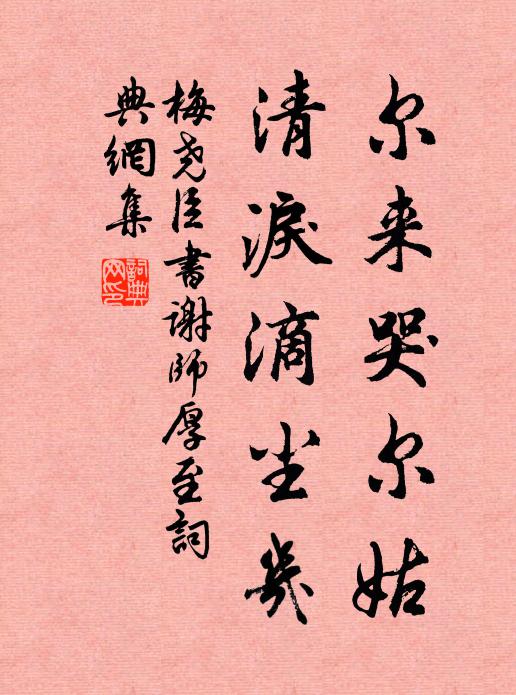 尔来哭尔姑
清淚滴尘几
梅尧臣书谢师厚至詞
典網集
詞典网印